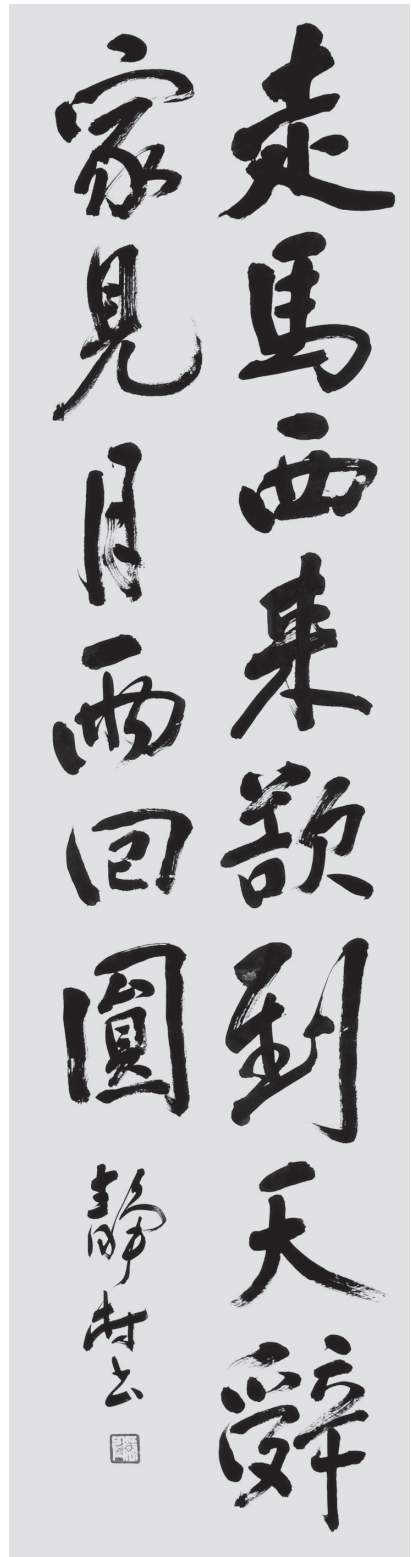 走馬西来欲到天辞
家見月兩回圓
静村书